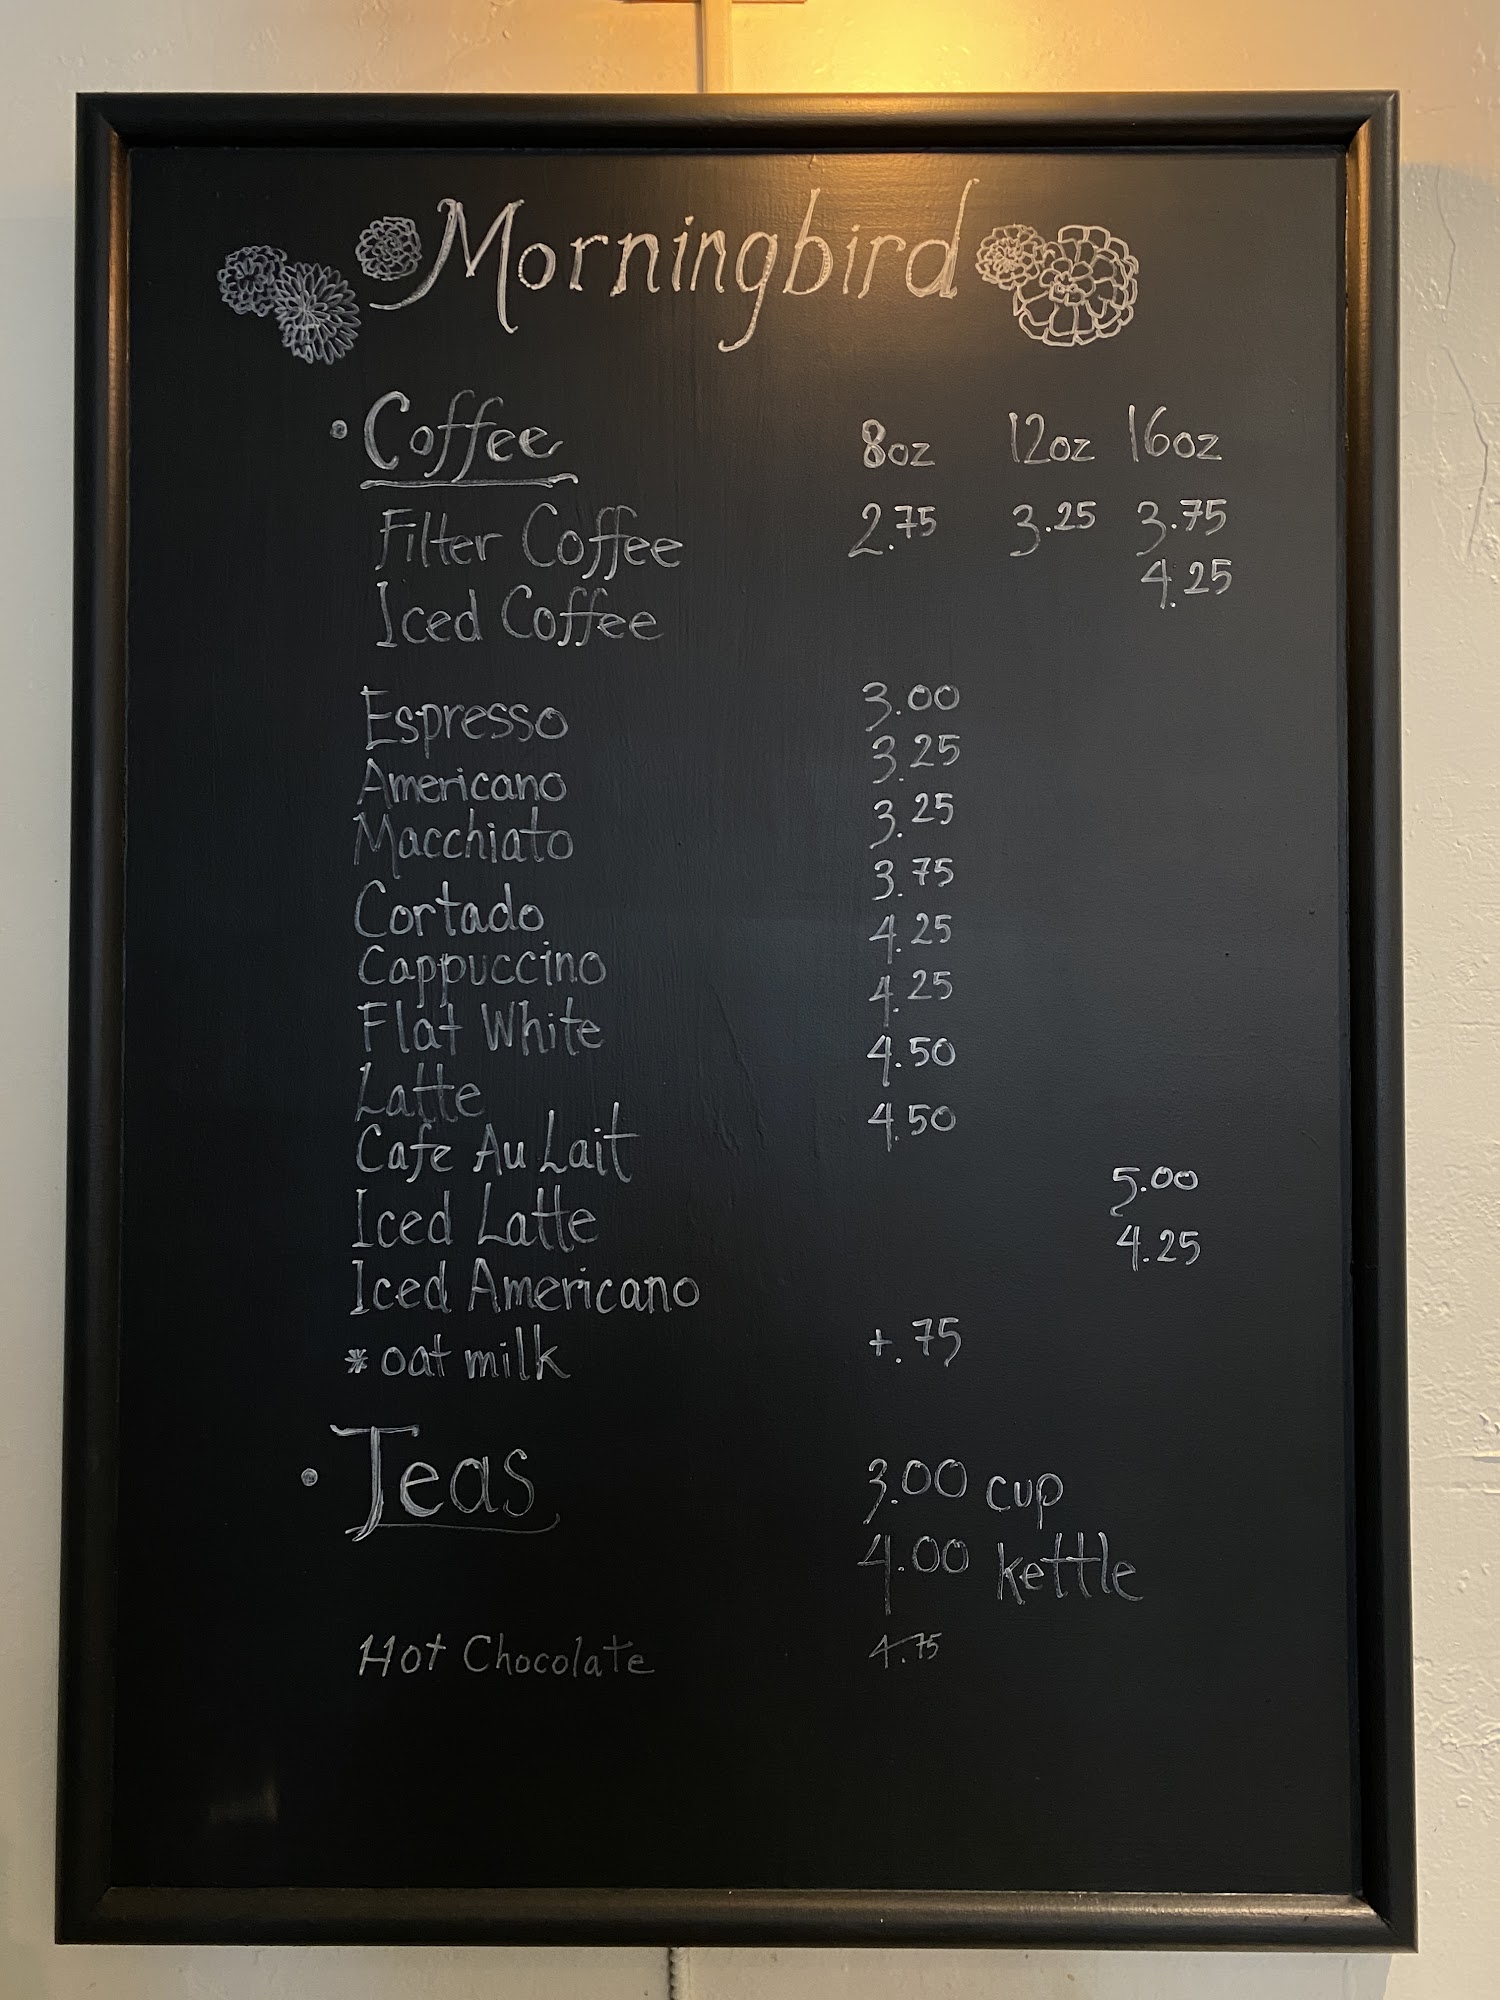 Morningbird
• Coffee 8oz 12oz 16oz
Filter Coffee 2.75 3.25 3.75
Iced Coffee 4.25
Espresso 3.00
Americano 3.25
Macchiato 3.25
Cortado 3.75
Cappuccino 4.25
Flat White 4.25
Latte 4.50
Cafe Au Lait 4.50
Iced Latte 5.00
Iced Americano 4.25
* oat milk +.75
• Teas 3.00 cup
4.00 kettle
Hot Chocolate 4.75